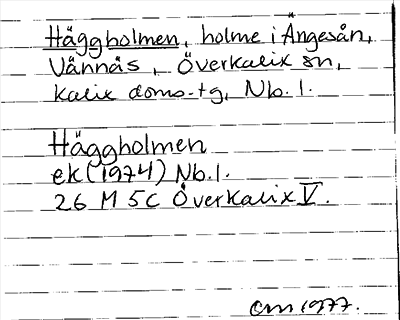 Häggholmen, holme i Ängesån,
Vännäs, Överkalix sn,
Kalix doms.-tg, Nb. l.
Häggholmen
ek (1974) Nb. l.
26 M 5c Överkalix V.
CM 1977.